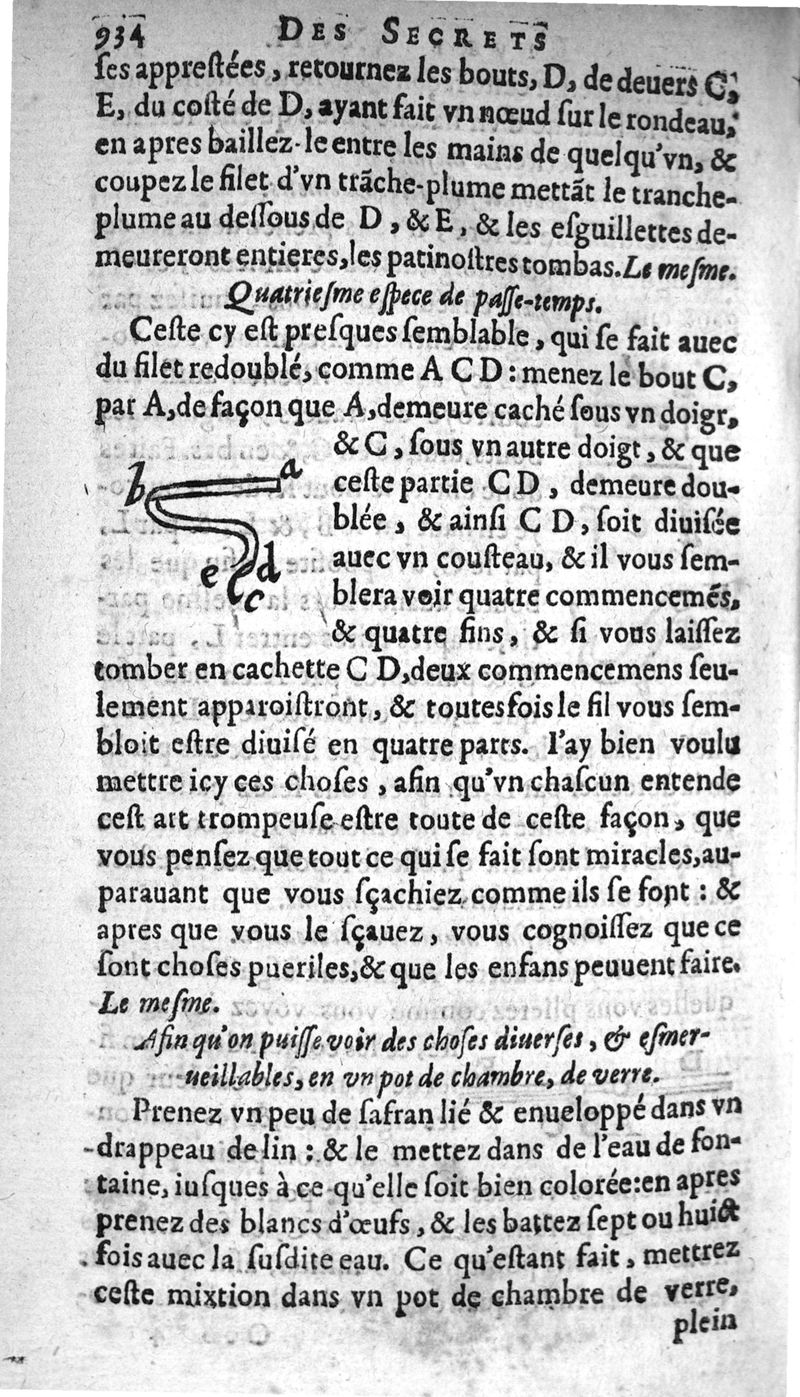 934 DES SECRETS
ſes appreſtées, retournez les bouts, D, de deuers C,
E, du coſté de D, ayant fait vn nœud ſur le rondeau,
en apres baillez-le entre les mains de quelqu'vn, &
coupez le filet d'vn trãche-plume mettãt le tranche-
plume au deſſous de D, & E, & les eſguillettes de-
meureront entieres, les patinoſtres tombas. Le meſme.
Quatrieſme eſpece de paſſe-temps.
Ceſte cy eſt preſques ſemblable, qui ſe fait auec
du filet redoublé, comme A C D : menez le bout C,
par A, de façon que A, demeure caché ſous vn doigt,
& C, ſous vn autre doigt, & que
ceſte partie C D, demeure dou-
blée, & ainſi C D, ſoit diuiſée
auec vn couſteau, & il vous ſem-
blera voir quatre commencemẽs,
& quatre fins, & ſi vous laiſſez
b a e d c
tomber en cachette C D, deux commencemens ſeu-
lement apparoiſtront, & toutesfois le fil vous ſem-
bloit eſtre diuiſé en quatre parts. I'ay bien voulu
mettre icy ces choſes, afin qu'vn chaſcun entende
ceſt art trompeuſe eſtre toute de ceſte façon, que
vous penſez que tout ce qui ſe fait ſont miracles, au-
parauant que vous ſçachiez comme ils ſe font : &
apres que vous le ſçauez, vous cognoiſſez que ce
ſont choſes pueriles, & que les enfans peuuent faire.
Le meſme.
Afin qu'on puiſſe voir des choſes diuerſes, & eſmer-
ueillables, en vn pot de chambre, de verre.
Prenez vn peu de ſafran lié & enueloppé dans vn
drappeau de lin : & le mettez dans de l'eau de fon-
taine, iuſques à ce qu'elle ſoit bien colorée: en apres
prenez des blancs d'œufs, & les battez ſept ou huict
fois auec la ſuſdite eau. Ce qu'eſtant fait, mettrez
ceſte mixtion dans vn pot de chambre de verre,
plein